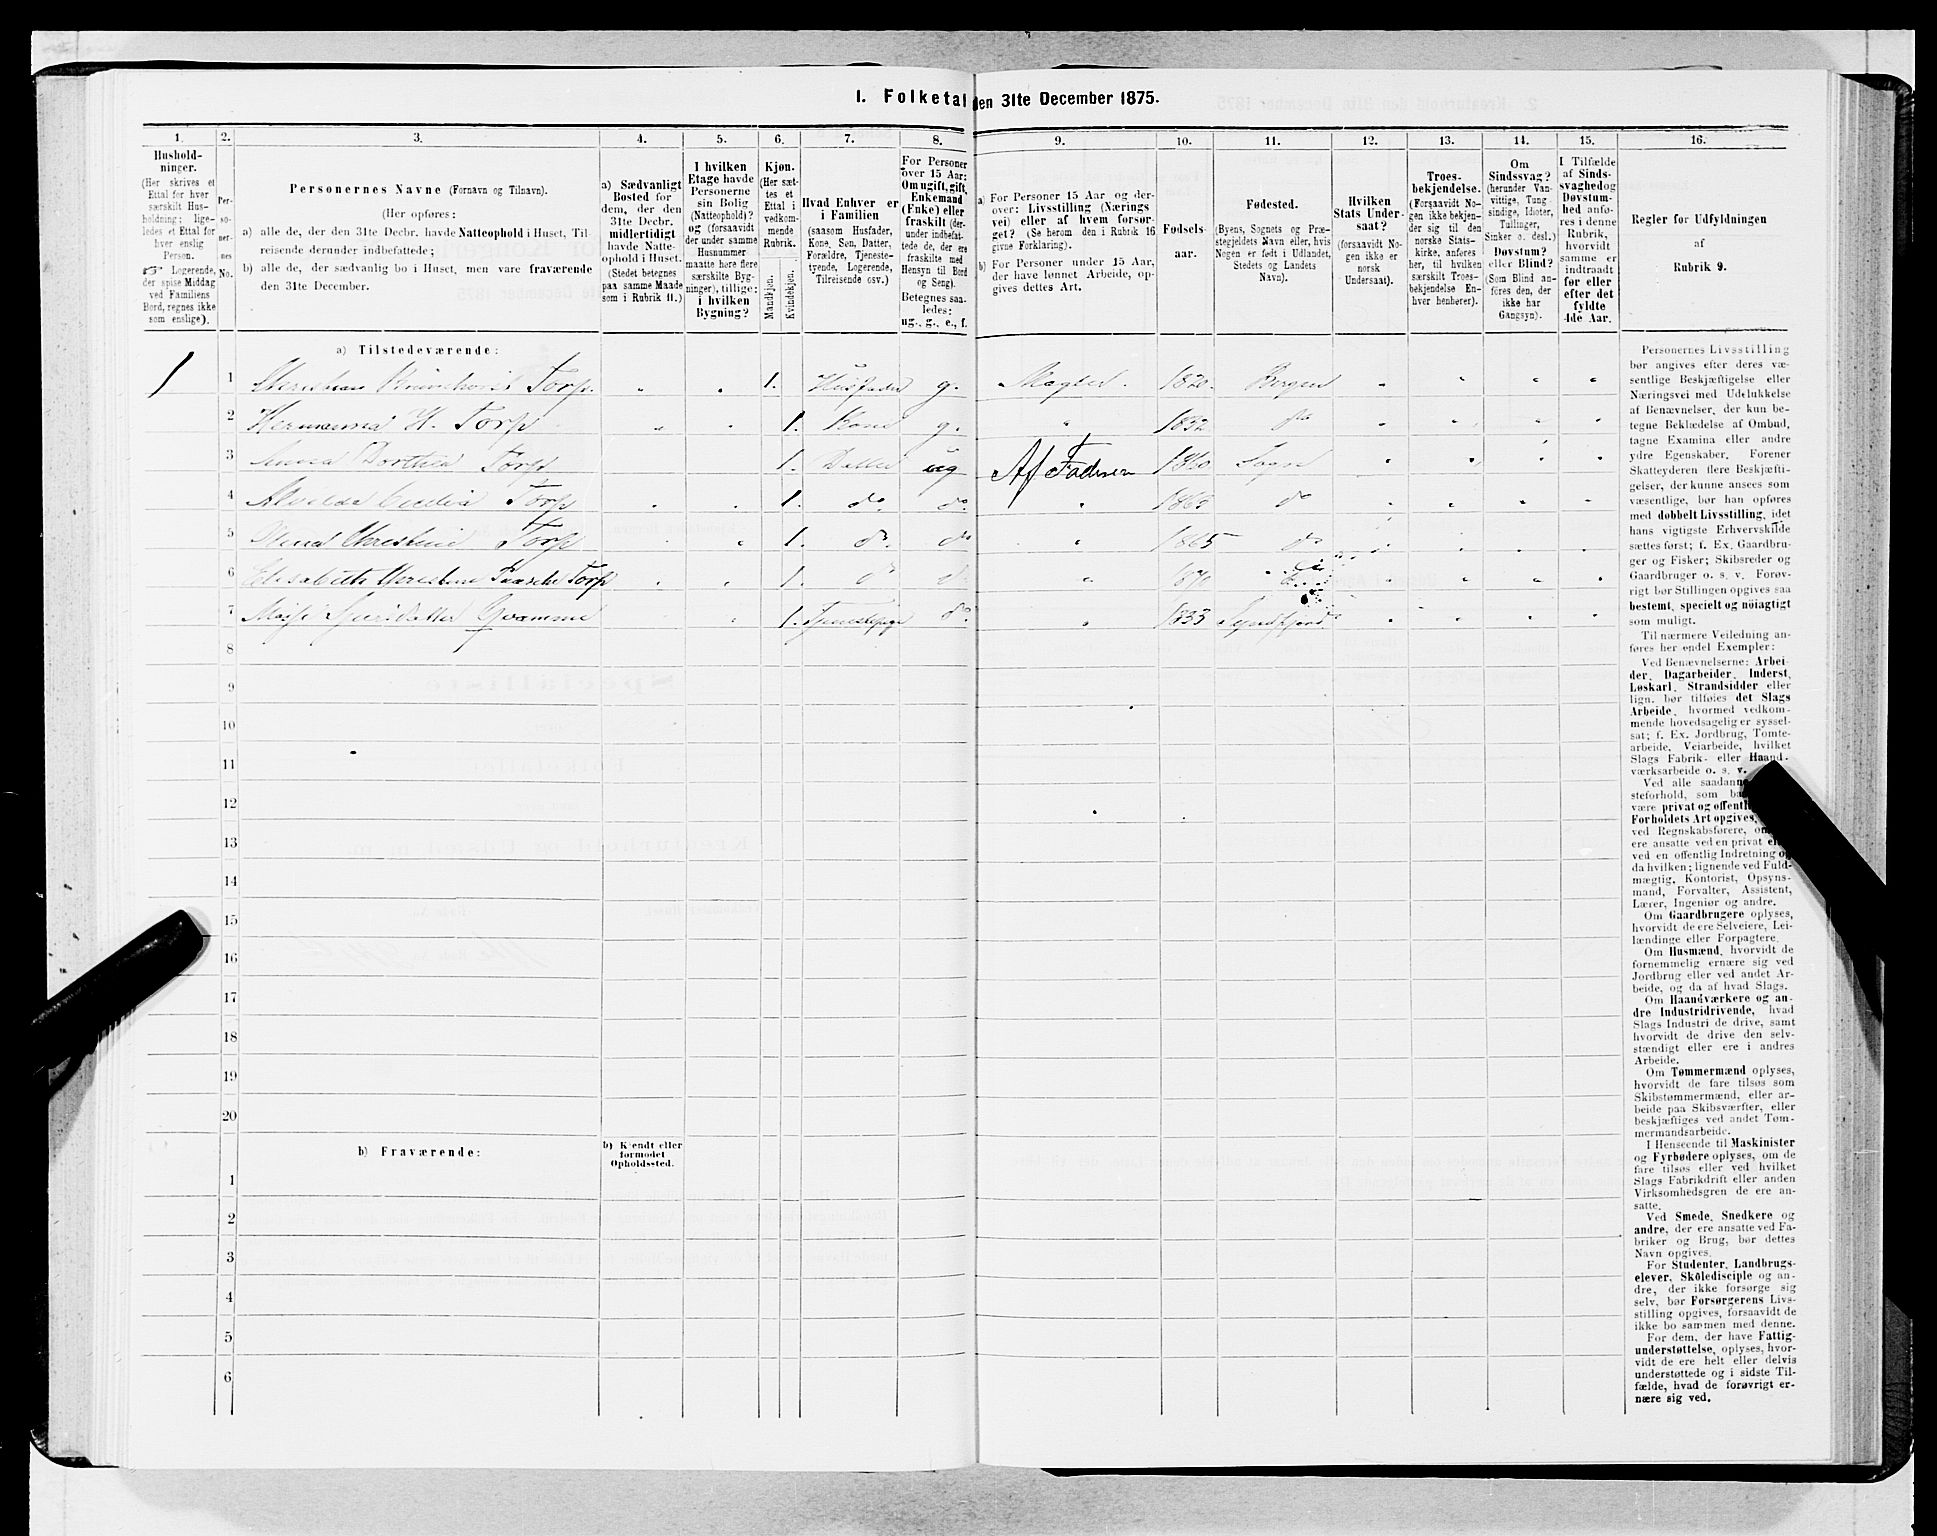 I. Folketal den 31te December 1875.
1. 2. 3. 4. 5. 6. 7. 8. 9. 10. 11. 12. 13. 14. 15. 16.
Hushold-
ninger.
(Her skrives et
Ettal for hver
særskilt Hus-
holdning; lige-
ledes et Ettal for
hver enslig
Person.
☞ Logerende,
der spise Middag
ved Familiens
Bord, regnes ikke
som enslige).
Per-
so-
ner-
nes
No.
Personernes Navne (Fornavn og Tilnavn).
(Her opføres:
a) alle de, der den 31te Decbr. havde Natteophold i Huset, Til-
reisende derunder indbefattede;
b) alle de, der sædvanlig bo i Huset, men vare fraværende
den 31te December.
a) Sædvanligt
Bosted for
dem, der den
31te Decbr.
midlertidigt
havde Natte-
ophold i Huset.
(Stedet betegnes
paa samme Maade
som i Rubrik 11.)
I hvilken
Etage havde
Personerne
sin Bolig
(Natteophold)?
og (forsaavidt
der under samme
Husnummer
maatte høre flere
særskilte Byg-
ninger), tillige:
i hvilken
Bygning?
Kjøn.
(Her sæt-
tes et
Ettal i
vedkom-
mende
Rubrik.
Mandkjøn.
Kvindekjøn.
Hvad Enhver er
i Familien
(saasom Husfader,
Kone, Søn, Datter,
Forældre, Tjeneste-
tyende, Logerende,
Tilreisende osv.)
For Personer
over 15 Aar:
Om ugift, gift,
Enkemand
(Enke) eller
fraskilt (der-
under indbefat-
tede de, der ere
fraskilte med
Hensyn til Bord
og Seng).
Betegnes saa-
ledes:
ug., g., e., f.
a) For Personer 15 Aar og der-
over: Livsstilling (Nærings
vei) eller af hvem forsør-
get? (Se herom den i Rubrik 16
givne Forklaring).
b) For Personer under 15 Aar,
der have lønnet Arbeide, op-
gives dettes Art.
Fødsels-
aar.
Fødested.
(Byens, Sognets og Præ-
stegjeldets Navn eller, hvis
Nogen er født i Udlandet,
Stedets og Landets
Navn).
Hvilken
Stats Under-
saat?
(forsaavidt No-
gen ikke er
norsk
Undersaat).
Troes-
bekjendelse.
(Forsaavidt No-
gen ikke bekjen-
der sig til den
norske Stats-
kirke, anføres
her, til hvilken
særskilt Troes-
bekjendelse En-
hver henhører).
Om
Sindssvag?
(herunder Van-
vittige, Tung-
sindige, Idioter,
Tullinger,
Sinker o. desl.)
Døvstum?
eller Blind?
(Som Blind an-
føres den, der
ikke har
Gangsyn).
I Tilfælde
af Sinds-
svaghed og
Døvstum-
hed anfø-
res i denne
Rubrik,
hvorvidt
samme er
indtraadt
før eller
efter det
fyldte
4de Aar.
Regler for Udfyldningen
af
Rubrik 9.
a) Tilstedeværende:
1 1 Torp. 1. Husfader g. 1820. Bergen
2 Torp 1. Kone g. 1832 do
3 Dorthea Torp 1. ug Af Faderen Sogn
4 Torp 1. do. do. 1863 do
5 Christine Torp 1. do. do 1865 do
6 Torp 1. do do
7 1. Tjenestepige do. 1833
8
9
10
11
12
13
14
15
16
17
18
19
20
b) Fraværende:
b) Kjendt eller
formodet
Opholdssted.
1
2
3
4
5
6
Personernes Livsstilling
bør angives efter deres væ-
sentlige Beskjæftigelse eller
Næringsvei med Udelukkelse
af Benævnelser, der kun be-
tegne Beklædelse af Ombud,
tagne Examina eller andre
ydre Egenskaber. Forener
Skatteyderen flere Beskjæfti-
gelser, der kunne ansees som
væsentlige, bør han opføres
med dobbelt Livsstilling, idet
hans vigtigste Erhvervskilde
sættes først; f. Ex. Gaardbru-
ger og Fisker; Skibsreder og
Gaardbruger o. s. v. Forøv-
rigt bør Stillingen opgives saa
bestemt, specielt og nöiagtigt
som muligt.
Til nærmere Veiledning an-
føres her endel Exempler:
Ved Benævnelserne: Arbei-
der, Dagarbeider, Inderst,
Løskarl, Strandsidder eller
lign. bør tilføies det Slags
Arbeide, hvormed vedkom-
mende hovedsagelig er syssel-
sat; f. Ex. Jordbrug, Tomte-
arbeide, Veiarbeide, hvilket
Slags Fabrik- eller Haand-
værksarbeide o. s. v.
Ved alle saadanne
steforhold, som
være privat og
Forholdets Art opgives,
ved Regnskabsførere,
ere ansatte ved en privat
ved en offentlig Indretning
da hvilken; lignende ved Fuld-
mægtig, Kontorist, Opsyns-
mand, Forvalter, Assistent,
Lærer, Ingeniør og andre.
Om Gaardbrugere oplyses,
hvorvidt de ere Selveiere, Lei-
lændinge eller Forpagtere.
Om Husmænd, hvorvidt de
fornemmelig ernære sig ved
Jordbrug eller ved andet Ar-
beide, og da af hvad Slags.
Om Haandværkere og an-
dre Industridrivende, hvad
Slags Industri de drive, samt
hvorvidt de drive den selv-
stændigt eller ere i andres
Arbeide.
Om Tømmermænd oplyses,
hvorvidt de fare tilsøs som
Skibstømmermænd, eller ar-
beide paa Skibsværfter, eller
beskjæftiges ved andet Tøm-
mermandsarbeide.
I Henseende til Maskinister
og Fyrbødere oplyses, om de
fare tilsøs eller ved hvilket
Slags Fabrikdrift eller anden
Virksomhedsgren de ere an-
satte.
Ved Smede, Snedkere og
andre, der ere ansatte ved Fa-
briker og Brug, bør dettes
Navn opgives.
For Studenter, Landbrugs-
elever, Skoledisciple og an-
dre, der ikke forsørge sig
selv, bør Forsørgerens Livs-
stilling opgives, forsaavidt de
ikke bo sammen med denne.
For dem, der have Fattig-
understøttelse, oplyses, hvor-
vidt de ere helt eller delvis
understøttede og i sidste Til-
fælde, hvad de forøvrigt er-
nære sig ved.